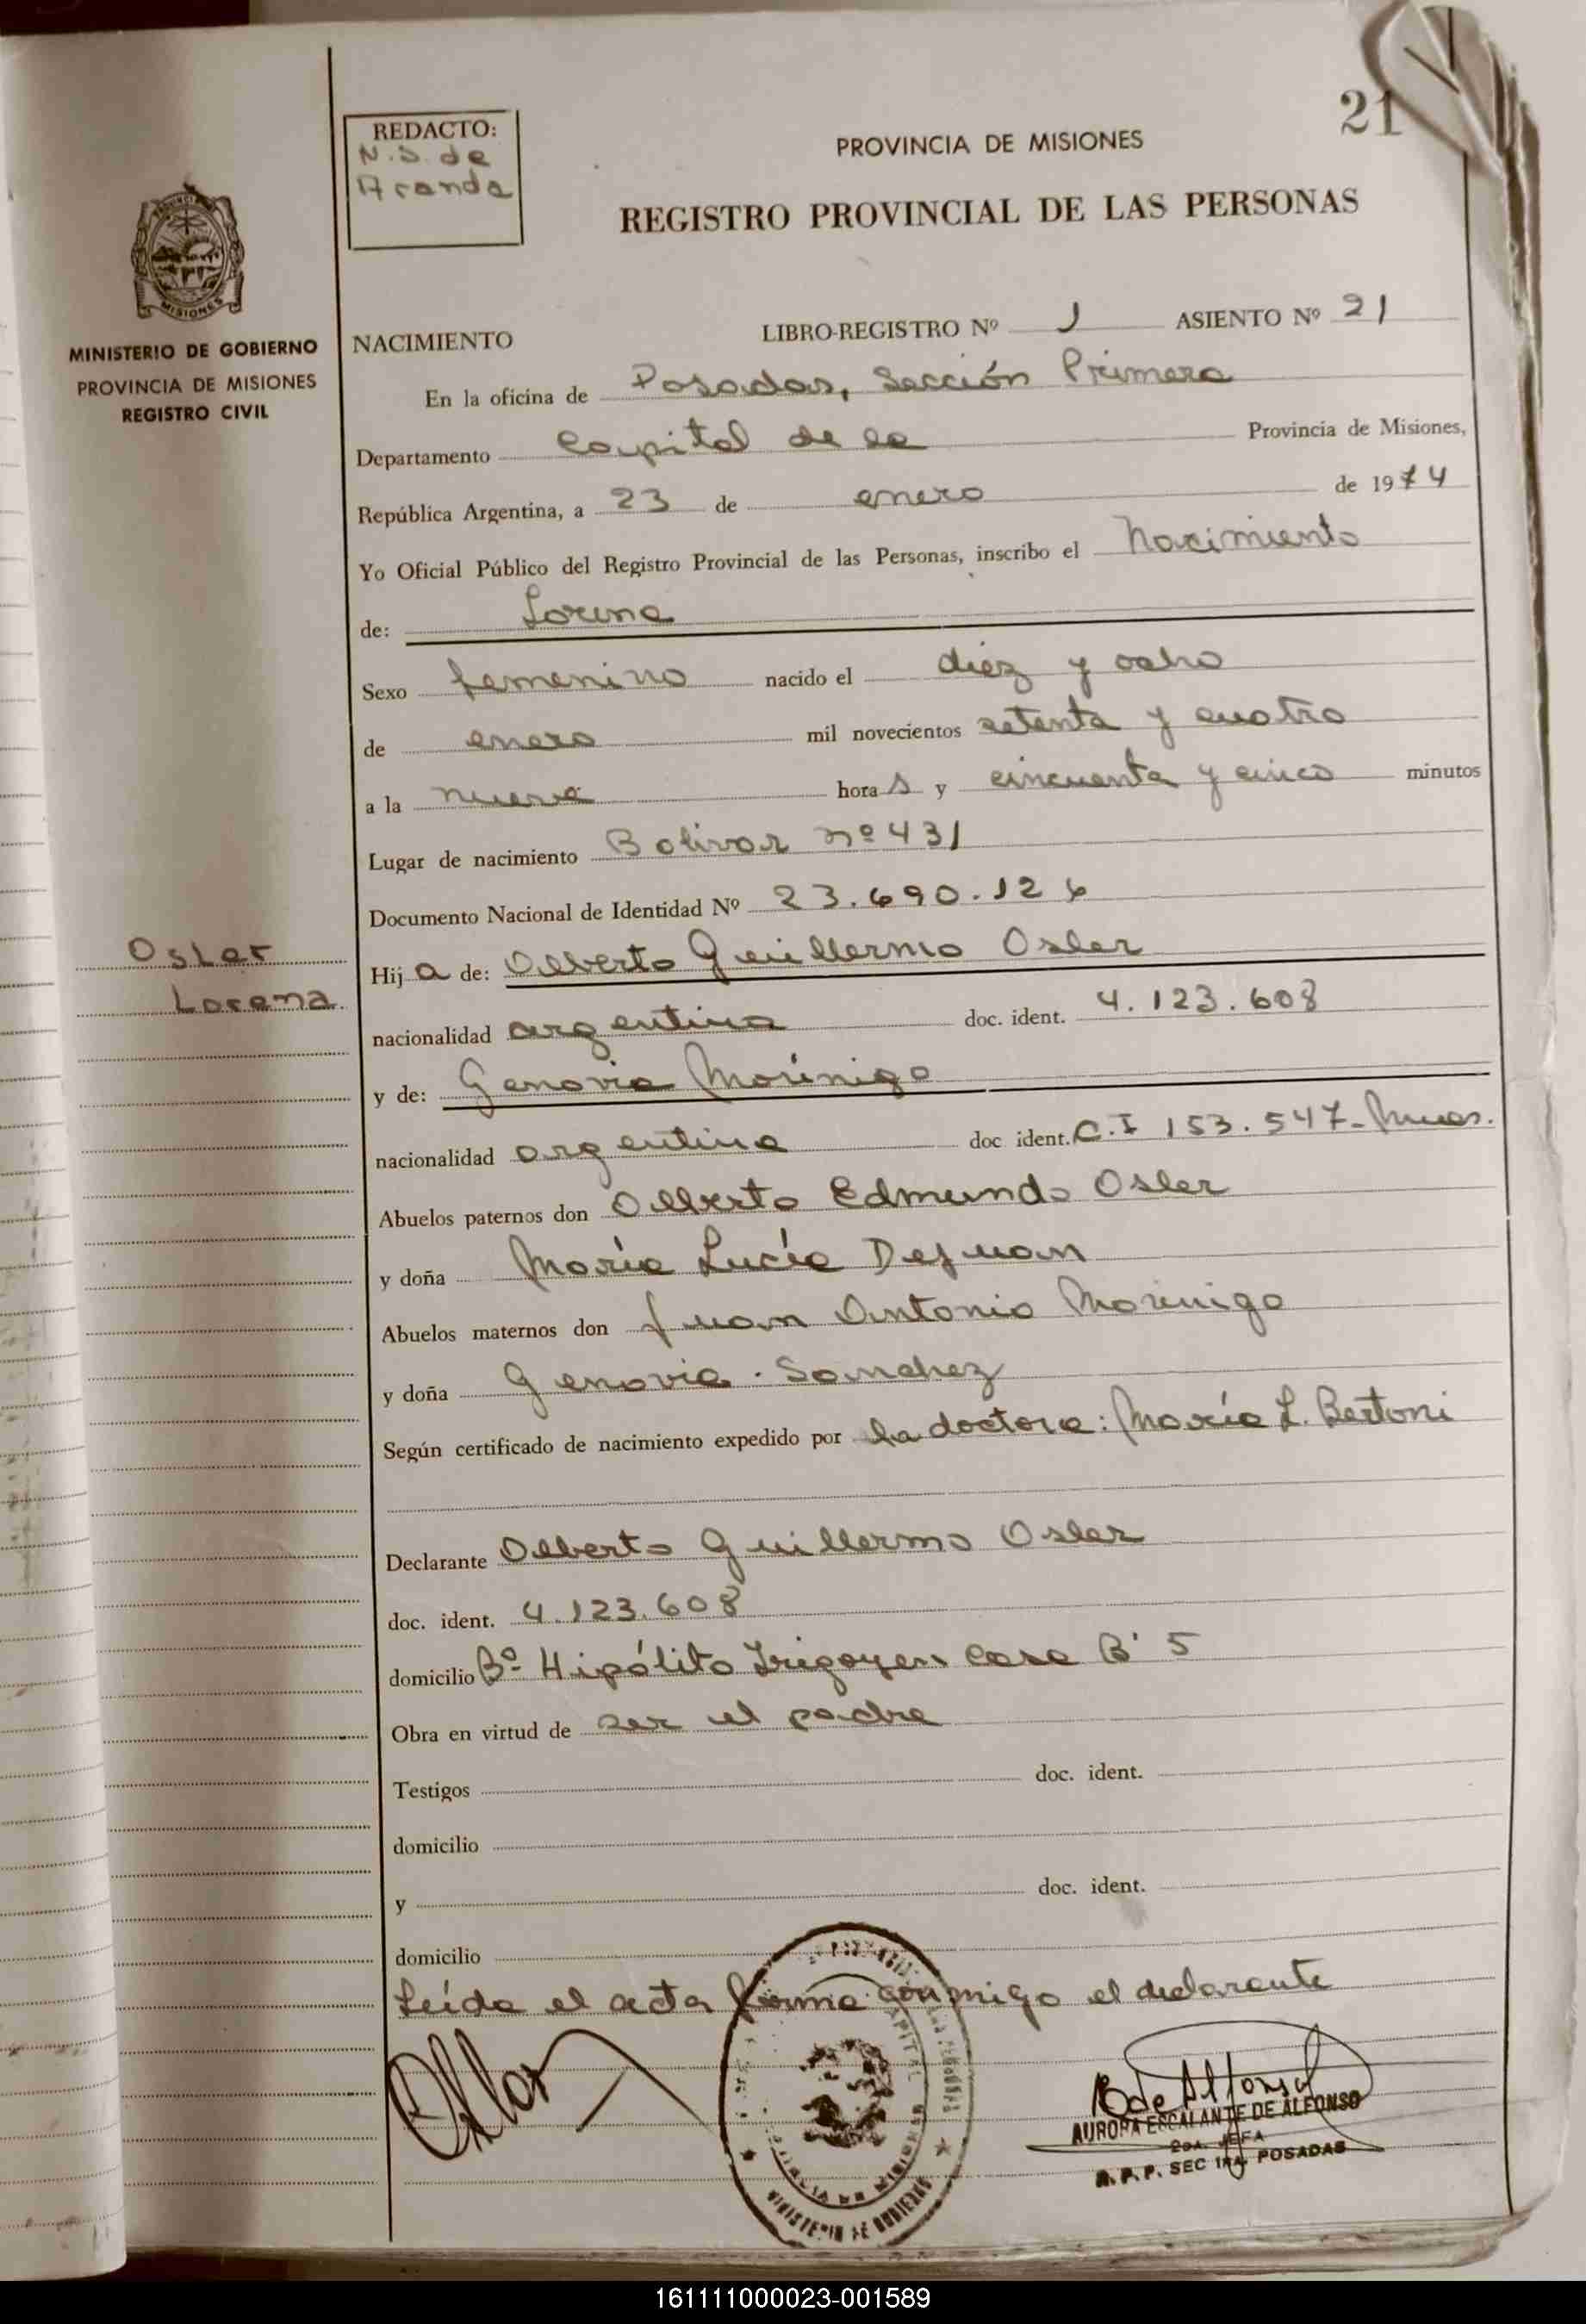 21
REDACTO:
N.S. de
Aranda
PROVINCIA DE MISIONES
REGISTRO PROVINCIAL DE LAS PERSONAS
MISIONES
MINISTERIO DE GOBIERNO
PROVINCIA DE MISIONES
REGISTRO CIVIL
NACIMIENTO LIBRO-REGISTRO Nº 1 ASIENTO Nº 21
En la oficina de Posadas, Sección Primera
Departamento Capital de la Provincia de Misiones,
República Argentina, a 23 de enero de 1974
Yo Oficial Público del Registro Provincial de las Personas, inscribo el nacimiento
de: Lorena
Sexo femenino nacido el diez y ocho
de enero mil novecientos setenta y cuatro
a la nueve horas y cincuenta y cinco minutos
Lugar de nacimiento Bolivar nº 431
Documento Nacional de Identidad Nº 23.690.126
Osler
Lorena
Hija de: Alberto Guillermo Osler
nacionalidad argentina doc. ident. 4.123.608
y de: Genovia Morinigo
nacionalidad argentina doc ident. C.I 153.547-
Abuelos paternos don Alberto Edmundo Osler
y doña María Lucía Dejuan
Abuelos maternos don Juan Antonio Morinigo
y doña Genovia Sanchez
Según certificado de nacimiento expedido por la doctora: María L. Bertoni
Declarante Alberto Guillermo Osler
doc. ident. 4.123.608
domicilio Bº Hipólito Irigoyen casa B' 5
Obra en virtud de ser el padre
Testigos doc. ident.
domicilio
y doc. ident.
domicilio
Leída el acta firma conmigo el declarante
MINISTERIO DE GOBIERNO
AURORA ESCALANTE DE ALFONSO
2DA. JEFA
R. P. P. SEC 1RA. POSADAS
161111000023-001589